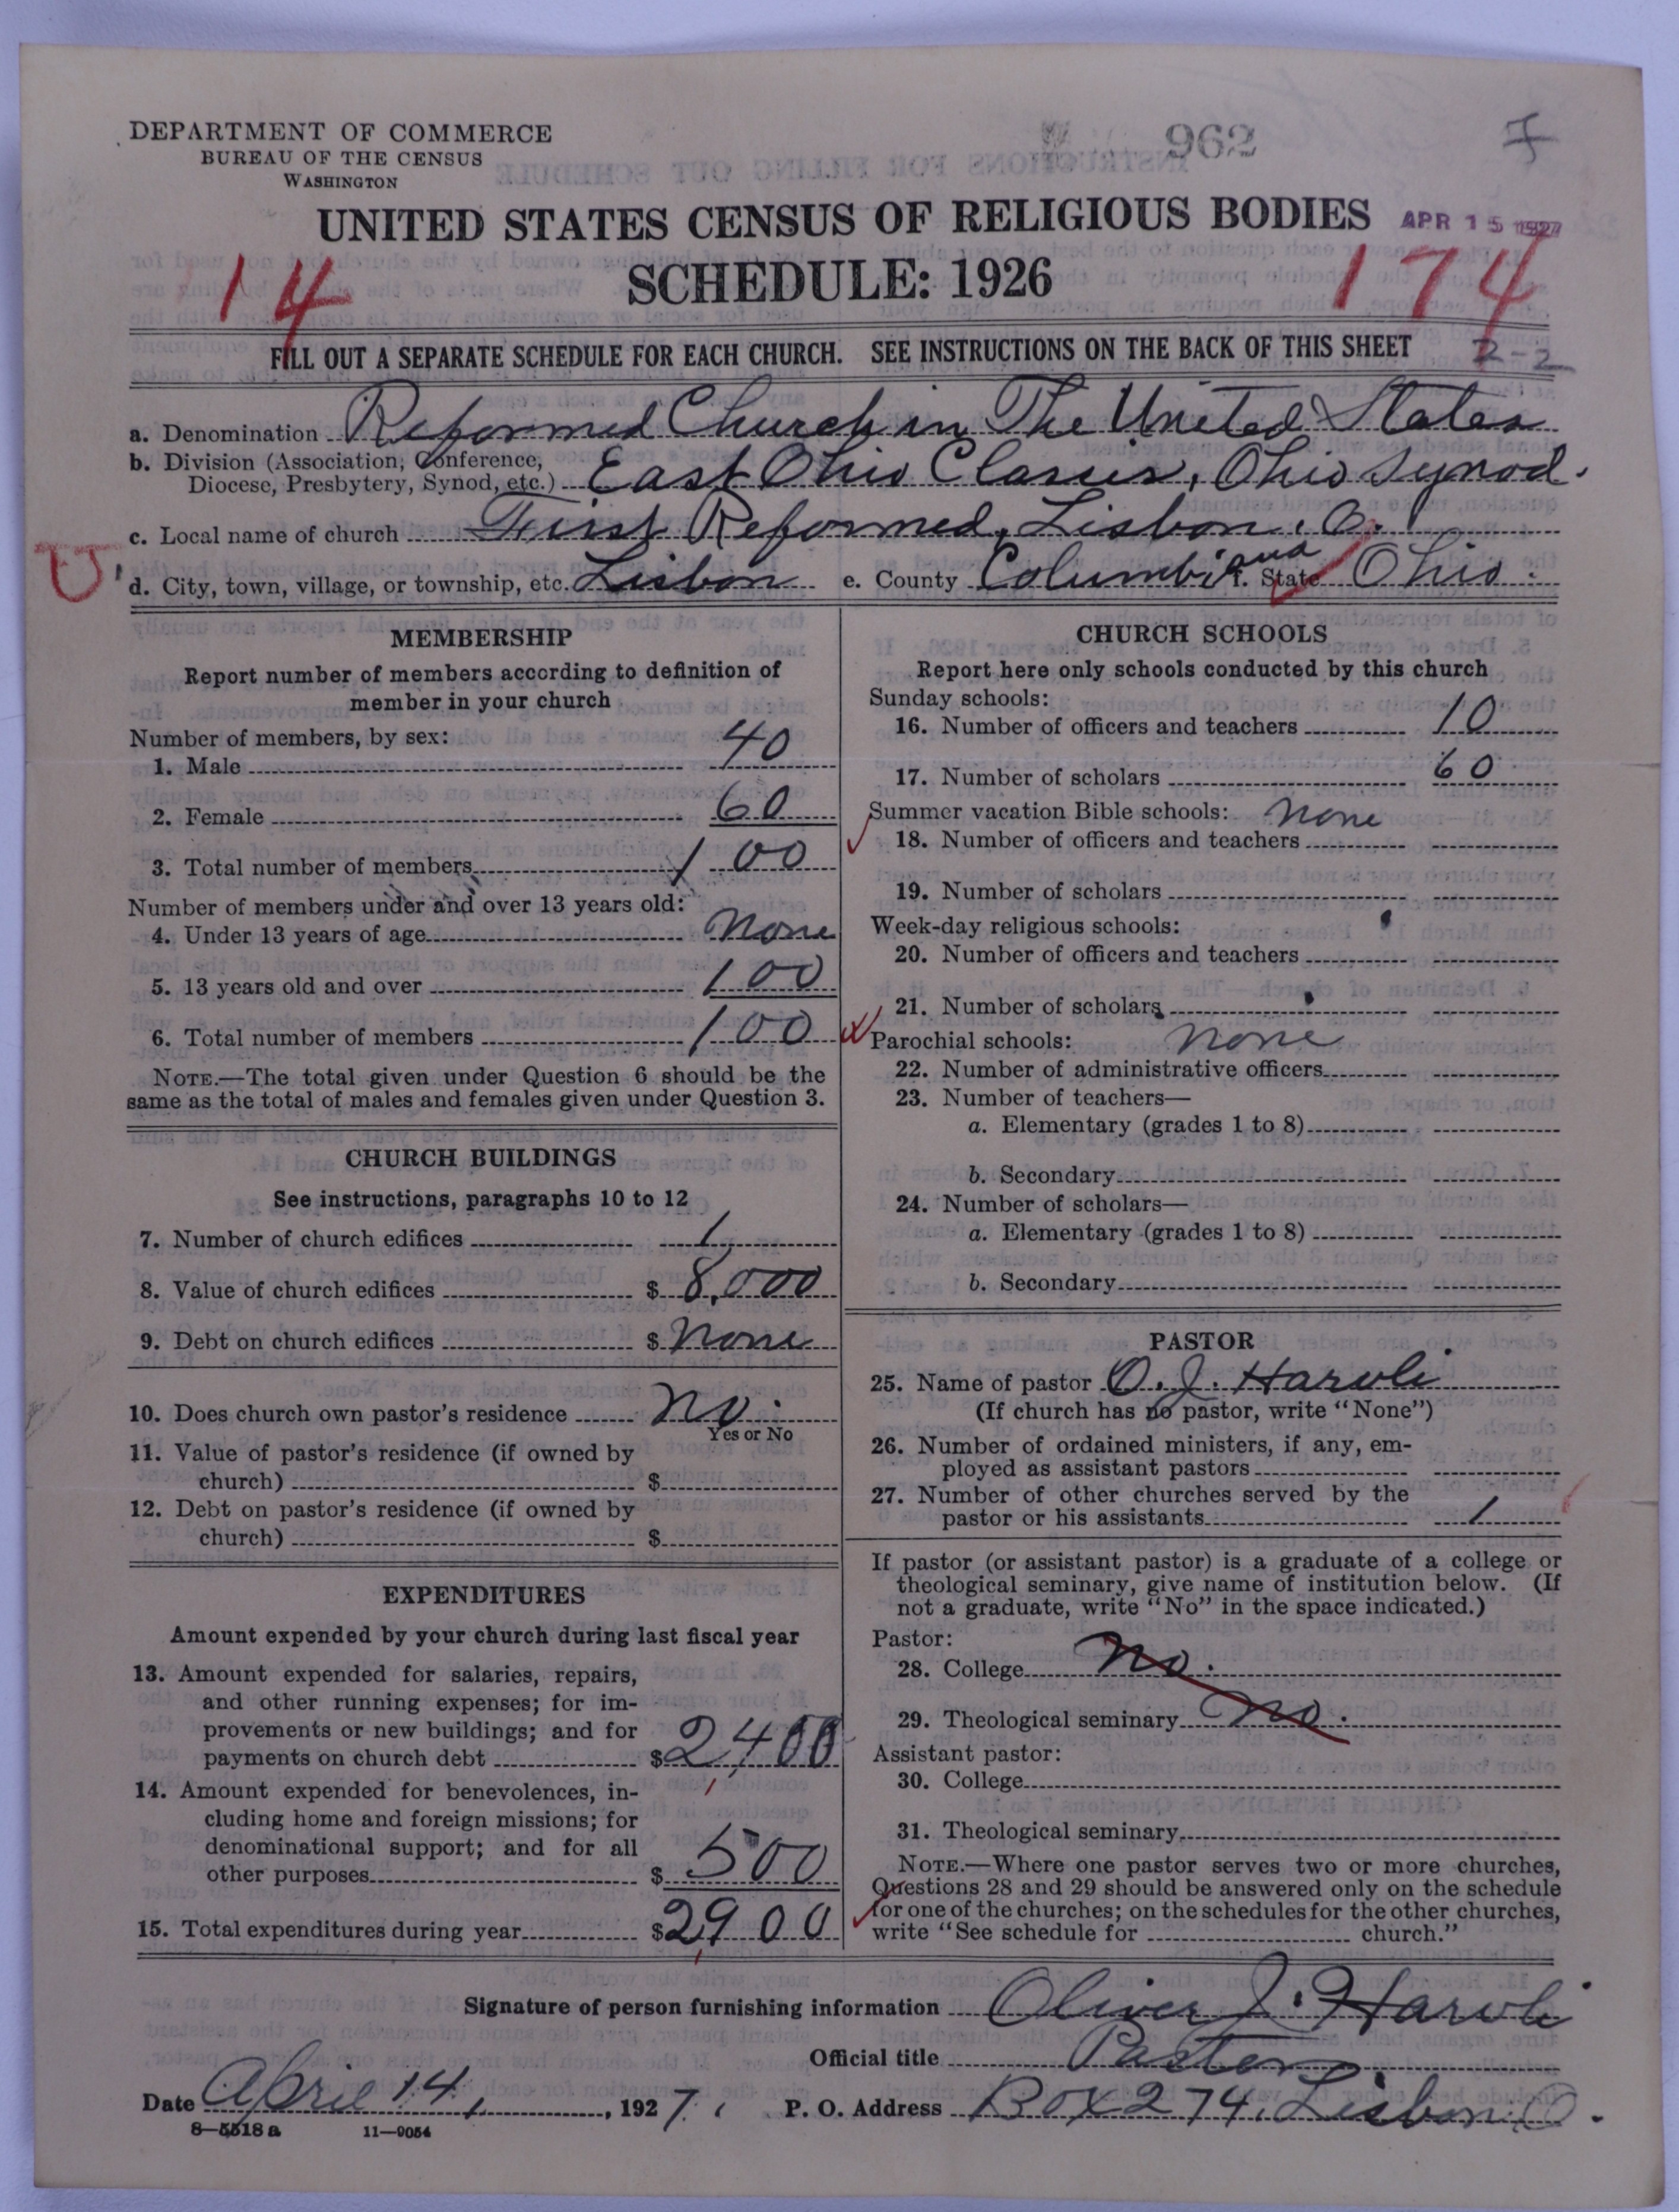 DEPARTMENT OF COMMERCE
BUREAU OF THE CENSUS
WASHINGTON
962
UNITED STATES CENSUS OF RELIGIOUS BODIES
APR 15 1927
SCHEDULE: 1926
14
174
FILL OUT A SEPARATE SCHEDULE FOR EACH CHURCH. SEE INSTRUCTIONS ON THE BACK OF THIS SHEET
2-2
a. Denomination Reformed Church in The United States
b. Division (Association, Conference,
Diocese, Presbytery, Synod, etc.) East Ohio Classis, Ohio Synod.
c. Local name of church First Reformed, Lisbon, O.
d. City, town, village, or township, etc. Lisbon e. County Columbiana f. State Ohio.
MEMBERSHIP
Report number of members according to definition of
member in your church
Number of members, by sex:
1. Male 40
2. Female 60
3. Total number of members 100
Number of members under and over 13 years old:
4. Under 13 years of age None
5. 13 years old and over 100
6. Total number of members 100
NOTE.—The total given under Question 6 should be the
same as the total of males and females given under Question 3.
CHURCH BUILDINGS
See instructions, paragraphs 10 to 12
7. Number of church edifices 1
8. Value of church edifices $ 8,000
9. Debt on church edifices $ None
10. Does church own pastor's residence No.
Yes or No
11. Value of pastor's residence (if owned by
church) $
12. Debt on pastor's residence (if owned by
church) $
EXPENDITURES
Amount expended by your church during last fiscal year
13. Amount expended for salaries, repairs,
and other running expenses; for im-
provements or new buildings; and for
payments on church debt $ 2,400
14. Amount expended for benevolences, in-
cluding home and foreign missions; for
denominational support; and for all
other purposes $ 500
15. Total expenditures during year $ 2,900
CHURCH SCHOOLS
Report here only schools conducted by this church
Sunday schools:
16. Number of officers and teachers 10
17. Number of scholars 60
Summer vacation Bible schools: None
18. Number of officers and teachers
19. Number of scholars
Week-day religious schools:
20. Number of officers and teachers
21. Number of scholars
Parochial schools: None
22. Number of administrative officers
23. Number of teachers—
a. Elementary (grades 1 to 8)
b. Secondary
24. Number of scholars—
a. Elementary (grades 1 to 8)
b. Secondary
PASTOR
25. Name of pastor O. J. Harvli
(If church has no pastor, write "None")
26. Number of ordained ministers, if any, em-
ployed as assistant pastors
27. Number of other churches served by the
pastor or his assistants 1
If pastor (or assistant pastor) is a graduate of a college or
theological seminary, give name of institution below. (If
not a graduate, write "No" in the space indicated.)
Pastor:
28. College No.
29. Theological seminary No.
Assistant pastor:
30. College
31. Theological seminary
NOTE.—Where one pastor serves two or more churches,
Questions 28 and 29 should be answered only on the schedule
for one of the churches; on the schedules for the other churches,
write "See schedule for church."
Signature of person furnishing information Oliver J. Harvli
Official title Pastor
Date April 14, 1927. P. O. Address Box 274, Lisbon, O.
8—5518 a 11—9054